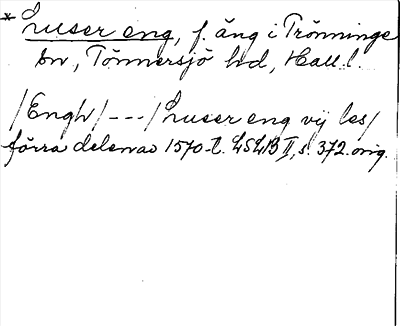 * Luser eng, f. äng i Trönninge
sn, Tönnersjö hd, Hall. l.
/Engh/---/Luser eng vij les/
förra delen av 1570-t. LSLIB II, s. 372. orig.